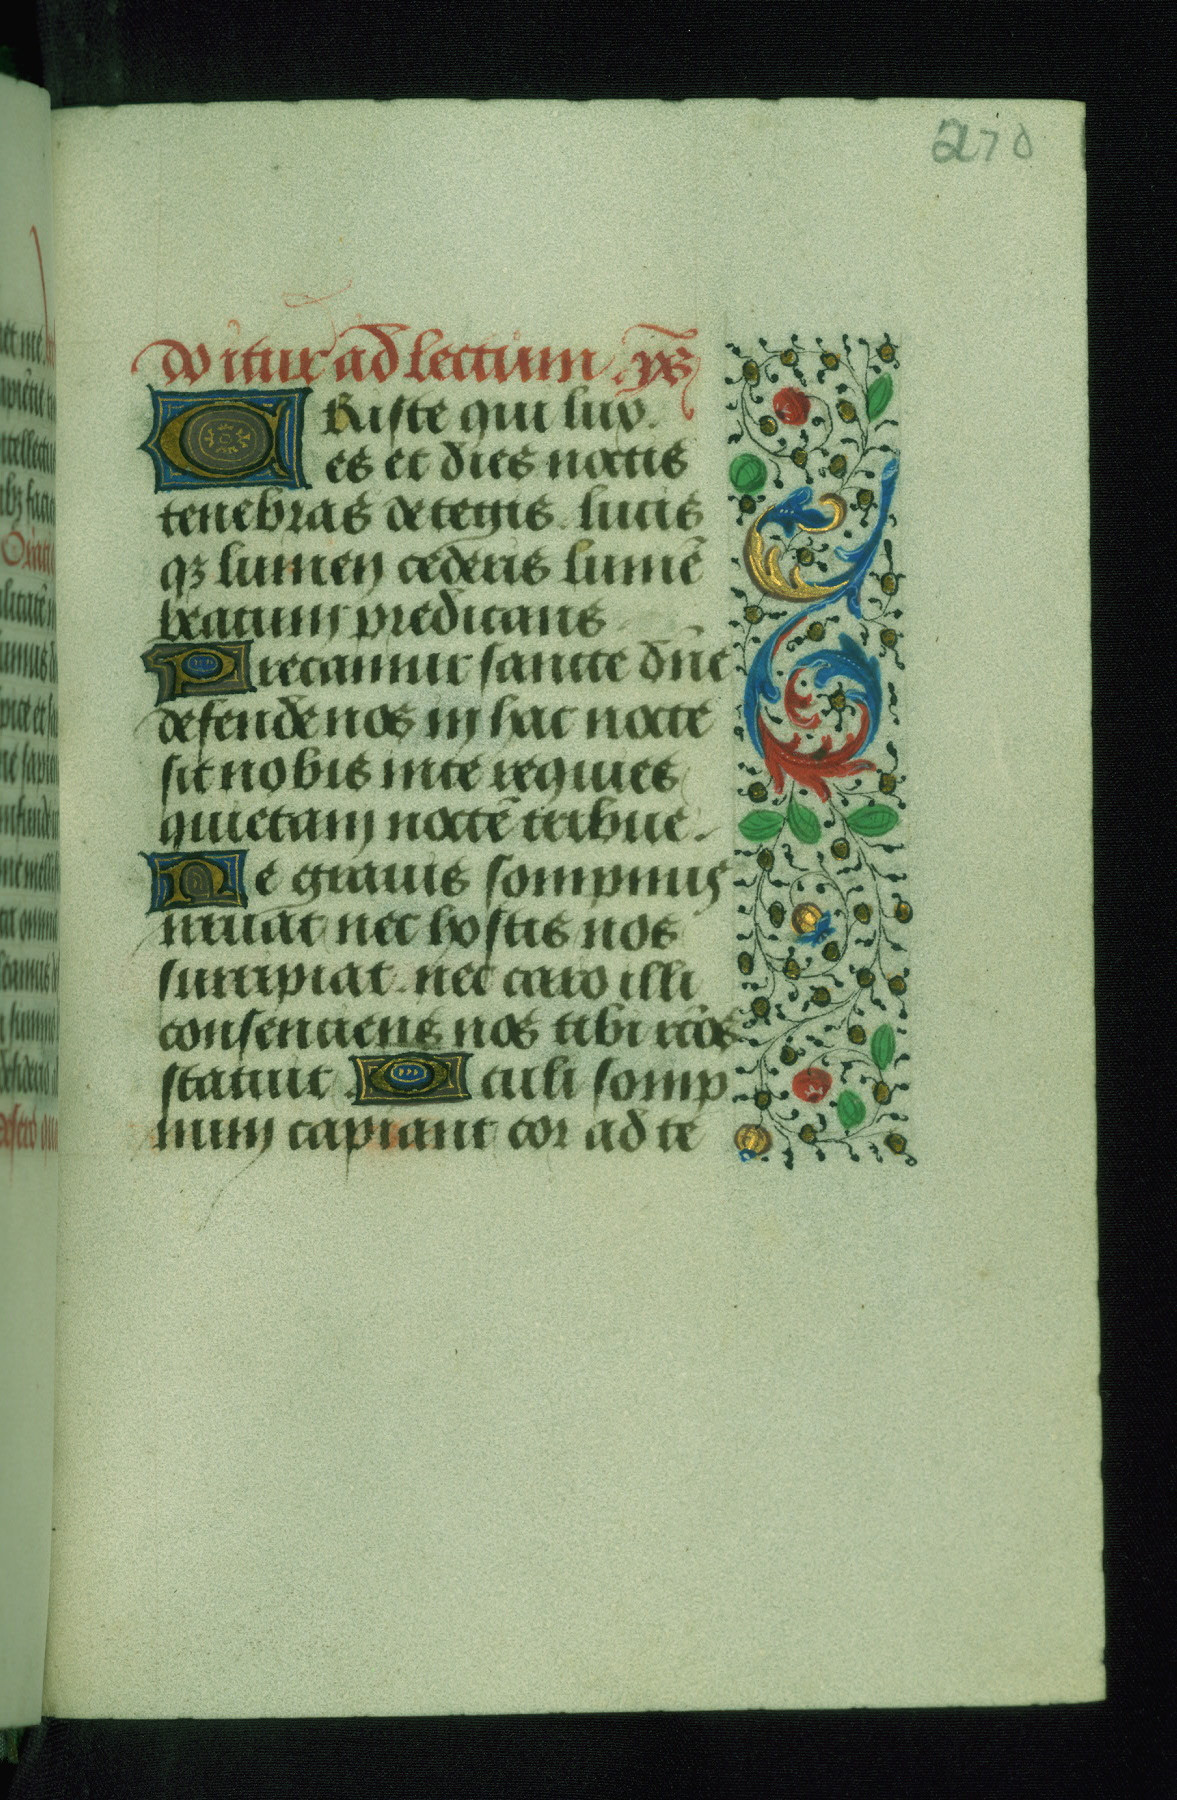 270
do itur ad lectum. ym̄s
Christe qui lux
es et dies noctis
tenebras detegis. lucis
qꝫ lumen cederis lumē
beatum predicans
Precamur sancte dn̄e
defende nos in hac nocte
sit nobis in te requies
quietam noctē tribue.
Ne grauis sompnus
irruat nec hostis nos
surripiat. nec caro illi
consenciens nos tibi rēos
statuat. Oculi somp
num capiant cor ad te